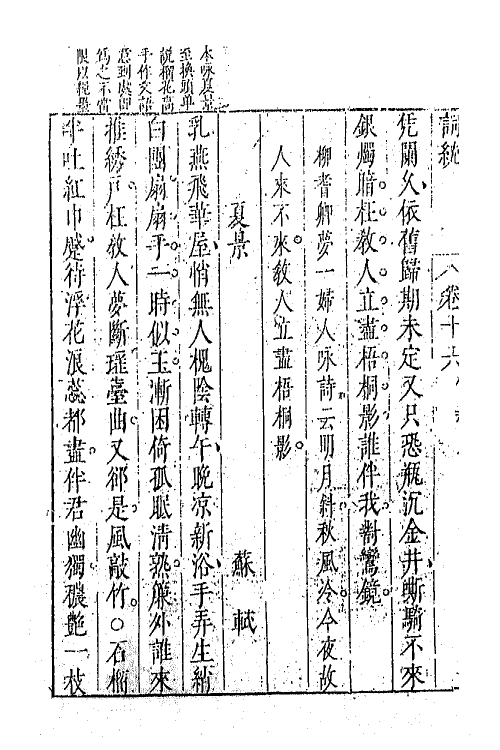 詞統　卷十六
凭闌久依舊歸期未定又只恐瓶沉金井嘶騎不來
銀燭暗枉教人立盡梧桐影誰伴我對鸞鏡
柳耆卿夢一婦人咏詩云明月斜秋風冷今夜故
人來不來教人立盡梧桐影
夏景　蘇軾
乳燕飛華屋悄無人槐陰轉午晚凉新浴手弄生綃
白團扇扇手一時似玉漸困倚孤眠清熟簾外誰來
推綉戶枉教人夢斷瑤臺曲又郤是風敲竹○石榴
半吐紅巾蹙待浮花浪蕊都盡伴君幽獨穠艷一枝
本咏夏景
至換頭單
說榴花高
手作文語
意到處即
為之不當
限以繩墨